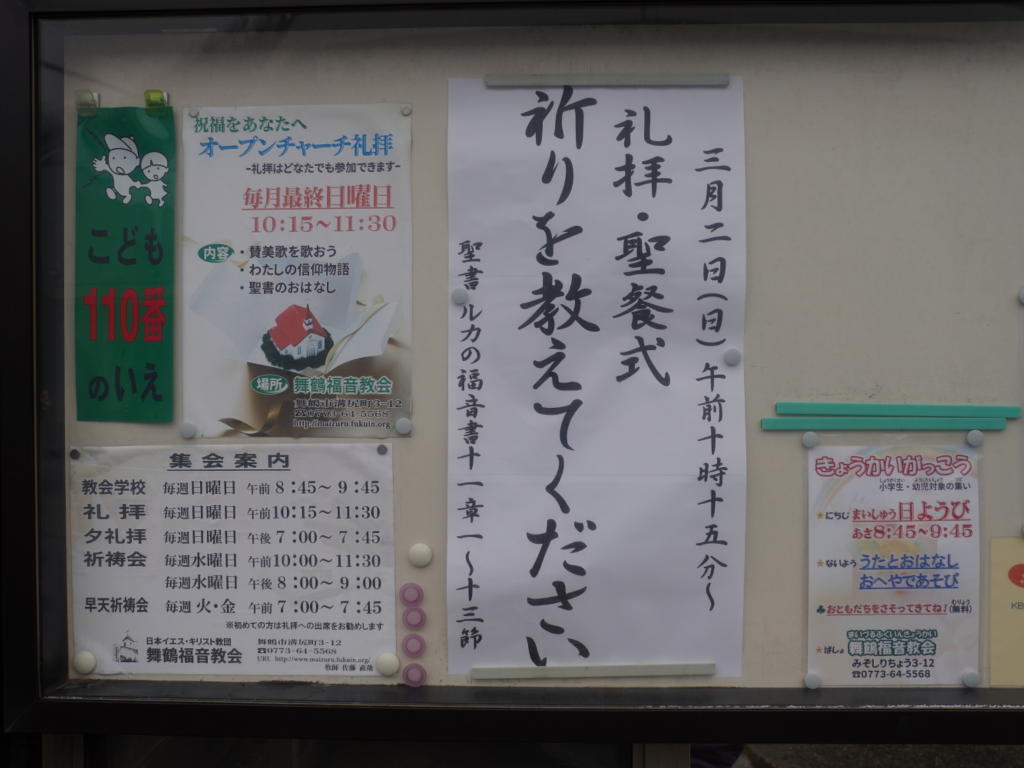 こども
110番
のいえ
祝福をあなたへ
オープンチャーチ礼拝
-礼拝はどなたでも参加できます-
毎月最終日曜日
10:15~11:30
内容
・賛美歌を歌おう
・わたしの信仰物語
・聖書のおはなし
場所 舞鶴福音教会
舞鶴市溝尻町3-12
☎0773-64-5568
http://maizuru.fukuin.org
集会案内
教会学校 毎週日曜日 午前 8:45~9:45
礼拝 毎週日曜日 午前10:15~11:30
夕礼拝 毎週日曜日 午後 7:00~7:45
祈祷会 毎週水曜日 午前10:00~11:30
毎週水曜日 午後 8:00~9:00
早天祈祷会 毎週 火・金 午前 7:00~7:45
※初めての方は礼拝への出席をお勧めします
日本イエス・キリスト教団
舞鶴福音教会
舞鶴市溝尻町3-12
☎0773-64-5568
URL http://www.maizuru.fukuin.org/
牧師 佐藤 直哉
三月二日(日)午前十時十五分~
礼拝・聖餐式
祈りを教えてください
聖書 ルカの福音書十一章一~十三節
きょうかいがっこう
小学生・幼児対象の集い
★にちじ まいしゅう日ようび
あさ8:45~9:45
★ないよう うたとおはなし
おへやであそび
♣おともだちをさそってきてね!(無料)
まいづるふくいんきょうかい
★ばしょ 舞鶴福音教会
みぞしりちょう3-12
☎0773-64-5568